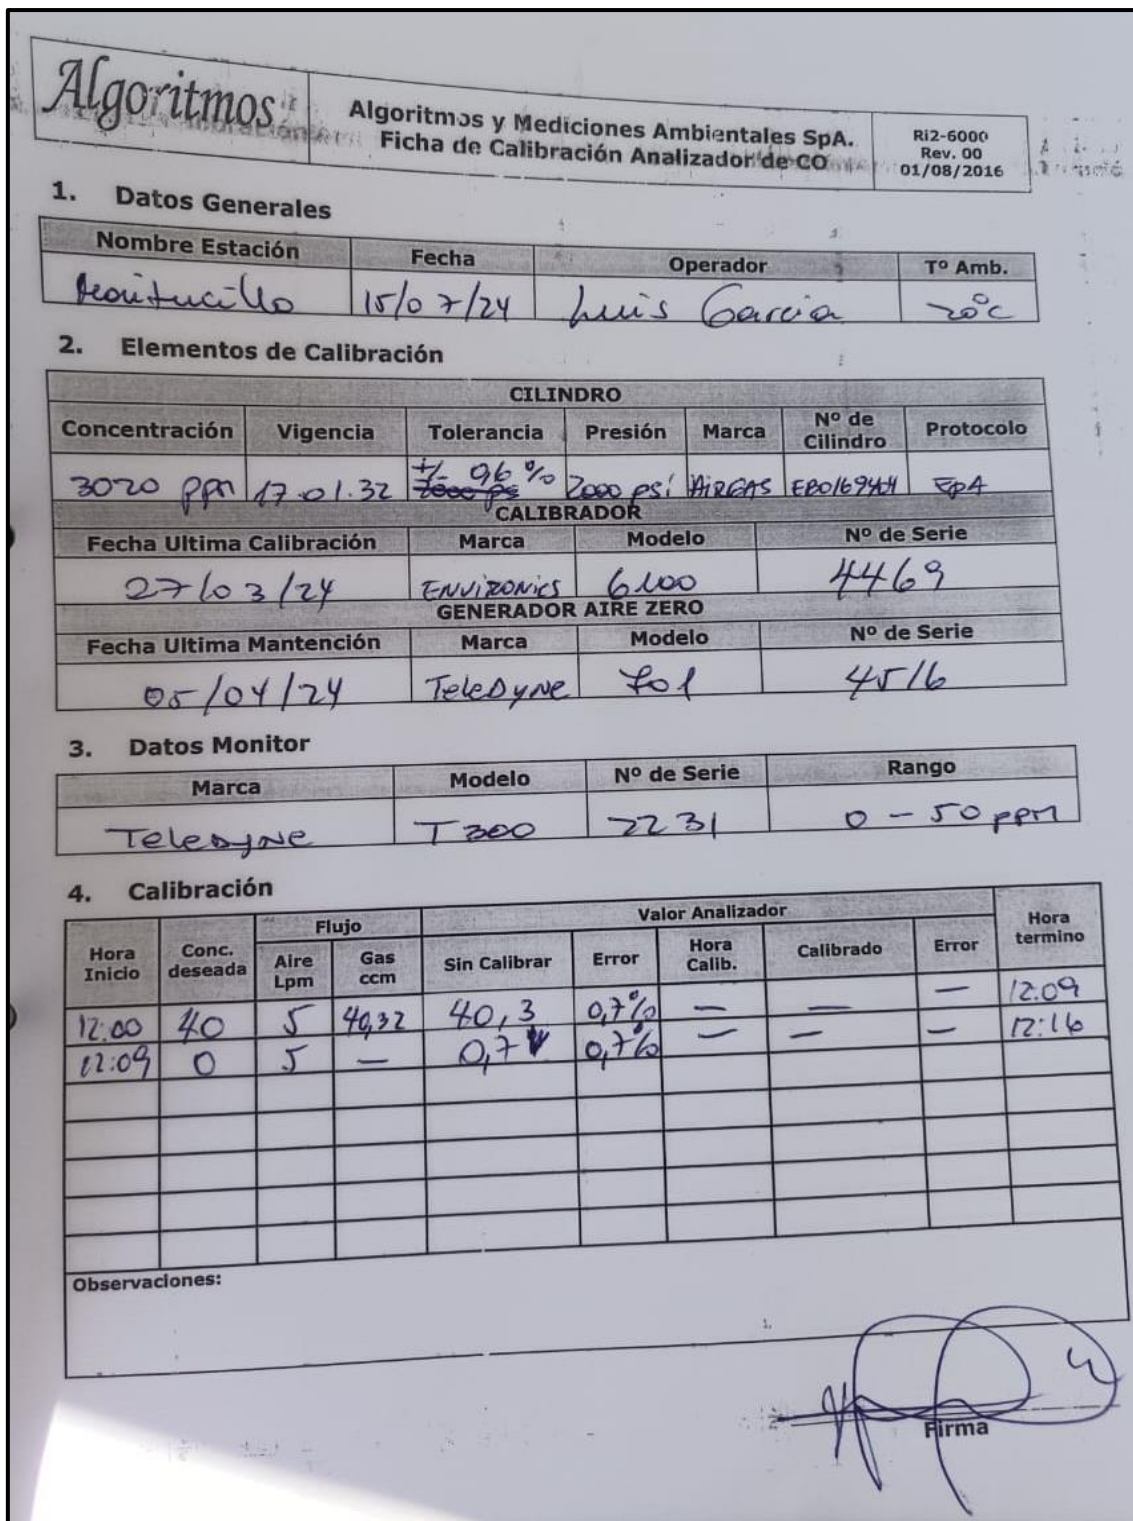 Algoritmos
Algoritmos y Mediciones Ambientales SpA.
Ficha de Calibración Analizador de CO
Ri2-6000
Rev. 00
01/08/2016
1. Datos Generales
Nombre Estación Fecha Operador Tº Amb.
15/07/24 Luis Garcia 20°C
2. Elementos de Calibración
CILINDRO
Concentración Vigencia Tolerancia Presión Marca Nº de Cilindro Protocolo
3020 ppm 17.01.32 +/- 96 % 2000 psi AIRGAS EPA
CALIBRADOR
Fecha Ultima Calibración Marca Modelo Nº de Serie
27/03/24 ENVIRONICS 6100 4469
GENERADOR AIRE ZERO
Fecha Ultima Mantención Marca Modelo Nº de Serie
05/04/24 TeleDyne 701 4516
3. Datos Monitor
Marca Modelo Nº de Serie Rango
Teledyne T300 2231 0 - 50 ppm
4. Calibración
Hora Inicio Conc. deseada Flujo Valor Analizador Hora termino
Aire Lpm Gas ccm Sin Calibrar Error Hora Calib. Calibrado Error
12:00 40 5 40,32 40,3 0,7% — — — 12:09
12:09 0 5 — 0,7 0,7% — — — 12:16
Observaciones:
Firma